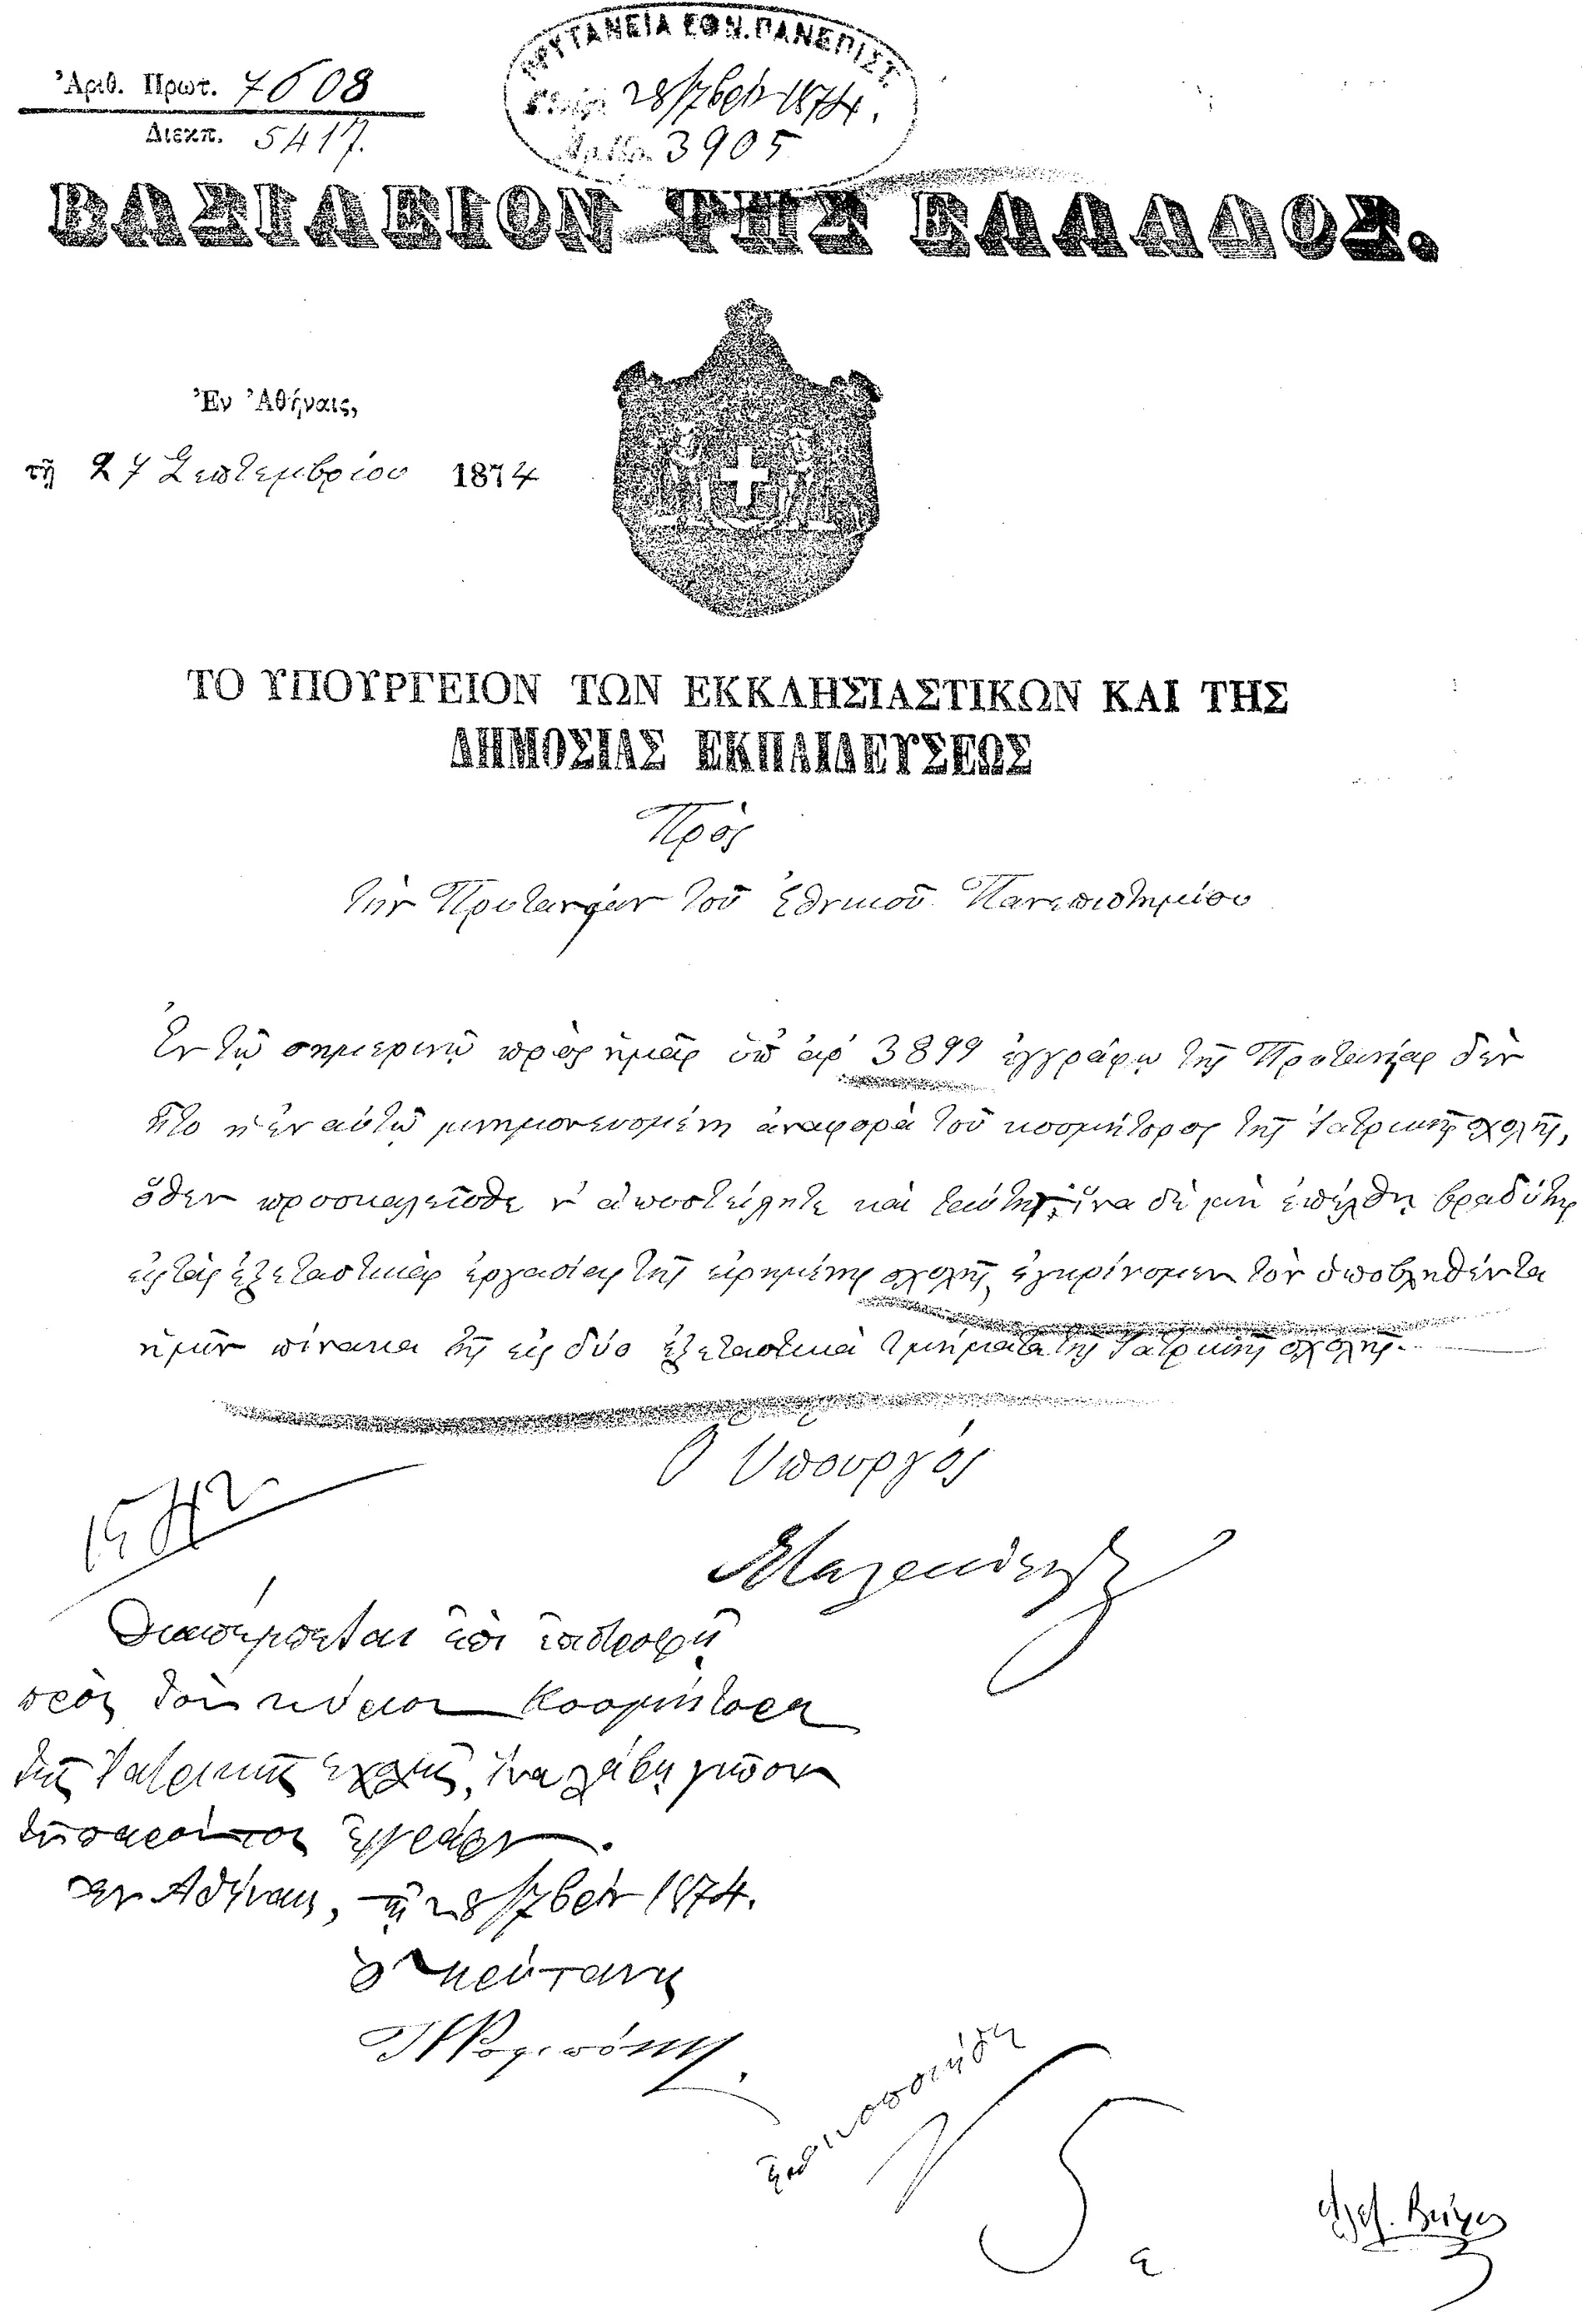 Ἀριθ. Πρωτ. 7608
Διεκπ. 5417.
ΠΡΥΤΑΝΕΙΑ ΕΘΝ. ΠΑΝΕΠΙΣΤ.
28/7βρίου 1874.
Ἀριθ. 3905
ΒΑΣΙΛΕΙΟΝ ΤΗΣ ΕΛΛΑΔΟΣ.
Ἐν Ἀθήναις,
τῇ 27 Σεπτεμβρίου 1874
ΤΟ ΥΠΟΥΡΓΕΙΟΝ ΤΩΝ ΕΚΚΛΗΣΙΑΣΤΙΚΩΝ ΚΑΙ ΤΗΣ
ΔΗΜΟΣΙΑΣ ΕΚΠΑΙΔΕΥΣΕΩΣ
Πρὸς
τὴν Πρυτανείαν τοῦ Ἐθνικοῦ Πανεπιστημίου
Ἐν τῷ σημερινῷ πρὸς ἡμᾶς ὑπ' ἀρ' 3899 ἐγγράφῳ τῆς Πρυτανείας δὲν
ἦτο ἡ ἐν αὐτῷ μνημονευομένη ἀναφορὰ τοῦ κοσμήτορος τῆς Ἰατρικῆς σχολῆς,
ὅθεν προσκαλεῖσθε ν' ἀποστείλητε καὶ ταύτην, ἵνα δὲ μὴ ἐπέλθῃ βραδύτης
εἰς τὰς ἐξεταστικὰς ἐργασίας τῆς εἰρημένης σχολῆς, ἐγκρίνομεν τὸν ὑποβληθέντα
ἡμῖν πίνακα τῆς εἰς δύο ἐξεταστικὰ τμήματα τῆς Ἰατρικῆς σχολῆς.
Ὁ Ὑπουργός
Διαπέμπεται ἐπὶ ἐπιστροφῇ
πρὸς τὸν κύριον Κοσμήτορα
τῆς Ἰατρικῆς Σχολῆς, ἵνα λάβῃ γνῶσιν
τοῦ παρόντος ἐγγράφου.
Ἐν Ἀθήναις, τῇ 28/7βρίου 1874.
Ὁ Πρύτανις